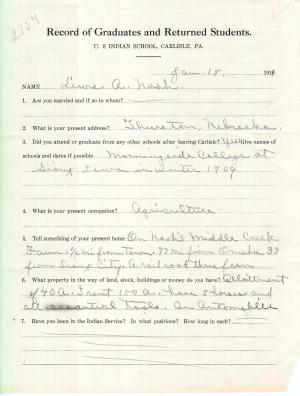 2154
Record of Graduates and Returned Students.
U. S INDIAN SCHOOL, CARLISLE, PA.
Jan. 18, 191
NAME Lewis A. Nash.
1. Are you married and if so to whom?
2. What is your present address? Thurston, Nebraska.
3. Did you attend or graduate from any other schools after leaving Carlisle? Yes Give names
schools and dates if possible Morningside College at
Sioux in Winter 1909
4. What is your present occupation? Agriculture
5. Tell something of your present home On Nash's Middle Creek
Farm. 1/2 mi from Town. 77 mi from Omaha 33
from Sioux City. A rail road thru farm
6. What property in the way of land, stock, buildings or money do you have? Allotment
of 40 A. I rent 100 A. Have 5 horses and
all essential tools. An Automobile
7. Have you been in the Indian Service? In what positions? How long in each?